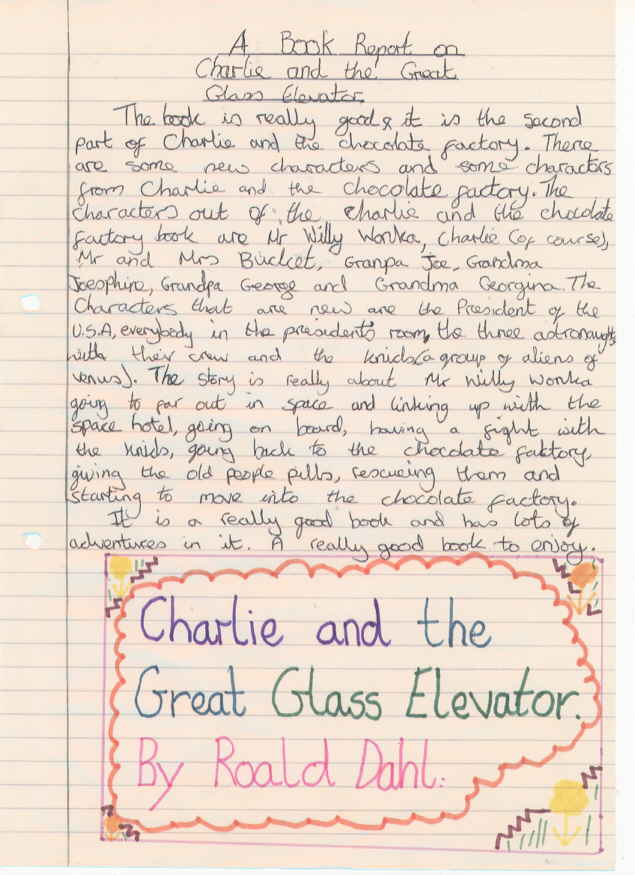 A Book Report on
Charlie and the Great
Glass Elevator
The book is really good & it is the second
part of Charlie and the chocolate factory. There
are some new characters and some characters
from Charlie and the chocolate factory. The
characters out of the charlie and the chocolate
factory book are Mr Willy Wonka, Charlie (of course),
Mr and Mrs Bucket, Granpa Joe, Grandma
Joesphine, Grandpa George and Grandma Georgina. The
Characters that are new are the President of the
U.S.A, everybody in the president's room, the three astronaughts
with their crew and the knids (a group of aliens of
venus). The story is really about Mr Willy Wonka
going to far out in space and linking up with the
space hotel, going on board, having a fight with
the knids, going back to the chocolate faktory,
giving the old people pills, rescueing them and
starting to move into the chocolate factory.
It is a really good book and has lots of
adventures in it. A really good book to enjoy.
Charlie and the
Great Glass Elevator.
By Roald Dahl.